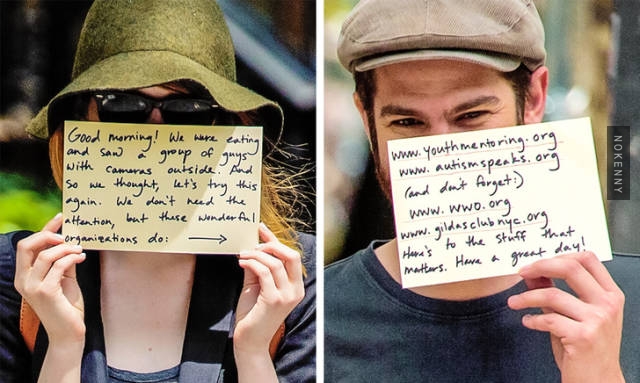 Good morning! We were eating
and saw a group of guys
with cameras outside. And
so we thought, let's try this
again. We don't need the
attention, but these wonderful
organizations do: →
www.youthmentoring.org
www.autismspeaks.org
(and don't forget:)
www.wwo.org
www.gildasclubnyc.org
Here's to the stuff that
matters. Have a great day!
NOKENNY